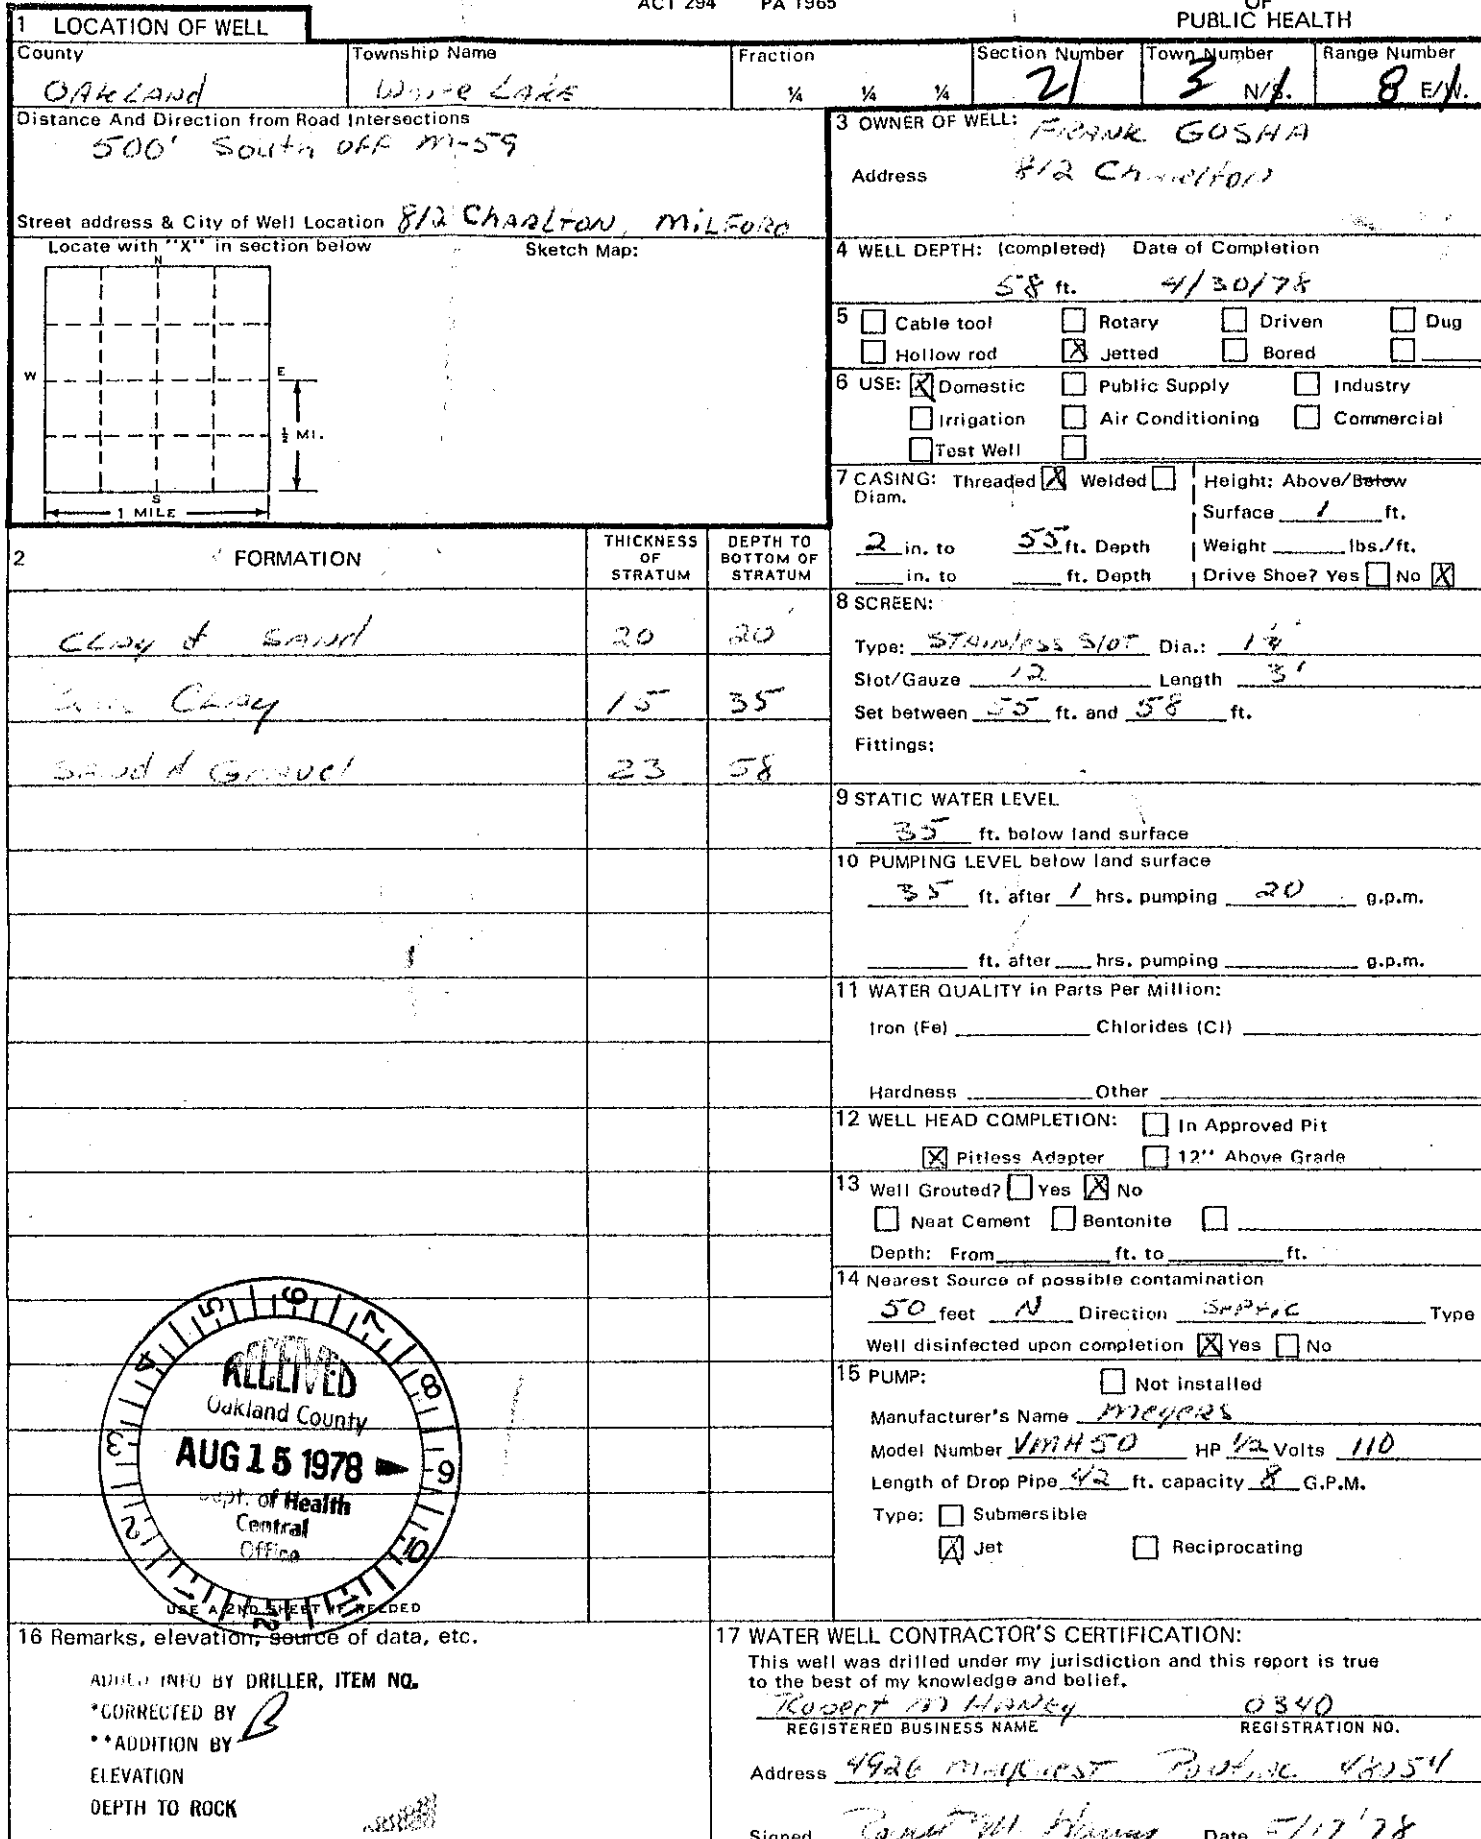 ACT 294 PA 1965
OF
PUBLIC HEALTH
1 LOCATION OF WELL
County
OAKLAND
Township Name
White LAKE
Fraction
¼ ¼ ¼
Section Number
21
Town Number
3 N/S.
Range Number
8 E/W.
Distance And Direction from Road Intersections
500' South OFF M-59
Street address & City of Well Location 812 CHARLTON, MILFORD
3 OWNER OF WELL: FRANK GOSHA
Address 812 Charlton
Locate with "X" in section below
Sketch Map:
N
W
E
S
½ MI.
1 MILE
4 WELL DEPTH: (completed) Date of Completion
58 ft. 4/30/78
5 Cable tool Rotary Driven Dug
Hollow rod X Jetted Bored
6 USE: X Domestic Public Supply Industry
Irrigation Air Conditioning Commercial
Test Well
7 CASING: Threaded X Welded Height: Above/Below
Diam.
Surface 1 ft.
2 in. to 55 ft. Depth Weight lbs./ft.
in. to ft. Depth Drive Shoe? Yes No X
2 FORMATION
THICKNESS OF STRATUM
DEPTH TO BOTTOM OF STRATUM
CLAY & SAND 20 20
Clay 15 35
Sand & Gravel 23 58
8 SCREEN:
Type: STAINLESS Slot Dia.: 1¼"
Slot/Gauze 12 Length 3'
Set between 55 ft. and 58 ft.
Fittings:
9 STATIC WATER LEVEL
35 ft. below land surface
10 PUMPING LEVEL below land surface
35 ft. after 1 hrs. pumping 20 g.p.m.
ft. after hrs. pumping g.p.m.
11 WATER QUALITY in Parts Per Million:
Iron (Fe) Chlorides (Cl)
Hardness Other
12 WELL HEAD COMPLETION: In Approved Pit
X Pitless Adapter 12" Above Grade
13 Well Grouted? Yes X No
Neat Cement Bentonite
Depth: From ft. to ft.
14 Nearest Source of possible contamination
50 feet N Direction Septic Type
Well disinfected upon completion X Yes No
15 PUMP: Not installed
Manufacturer's Name Meyers
Model Number VMH50 HP 1/2 Volts 110
Length of Drop Pipe 42 ft. capacity 8 G.P.M.
Type: Submersible
X Jet Reciprocating
1 2 3 4 5 6 7 8 9 10 11 12
RECEIVED
Oakland County
AUG 15 1978
Dept. of Health
Central
Office
USE A 2ND SHEET IF NEEDED
16 Remarks, elevation, source of data, etc.
ADDED INFO BY DRILLER, ITEM NO.
*CORRECTED BY
**ADDITION BY
ELEVATION
DEPTH TO ROCK
17 WATER WELL CONTRACTOR'S CERTIFICATION:
This well was drilled under my jurisdiction and this report is true
to the best of my knowledge and belief.
Robert M HANEY 0340
REGISTERED BUSINESS NAME REGISTRATION NO.
Address 4926 Pontiac 48054
Signed Robert M. Haney Date 5/17/78